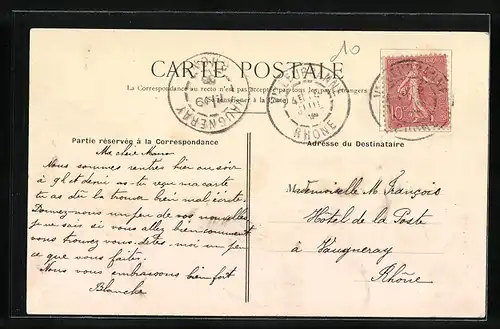 10
CARTE POSTALE
La Correspondance au recto n'est pas acceptée par tous les pays étrangers
(Se renseigner à la Poste)
VAUGNERAY
RHONE
RHONE
10
Partie réservée à la Correspondance
Adresse du Destinataire
Ma chère
Nous sommes rentrés hier au soir
à 9h et demi as-tu reçu ma carte
tu as dû la trouver bien mal écrite.
Donnez-nous un peu de vos nouvelles
je ne sais si vous allez bien comment
vous trouvez vous. dites-moi un peu
ce que vous faites.
Nous vous embrassons bien fort
Blanche
Mademoiselle M. François
Hôtel de la Poste
à Vaugneray
Rhône